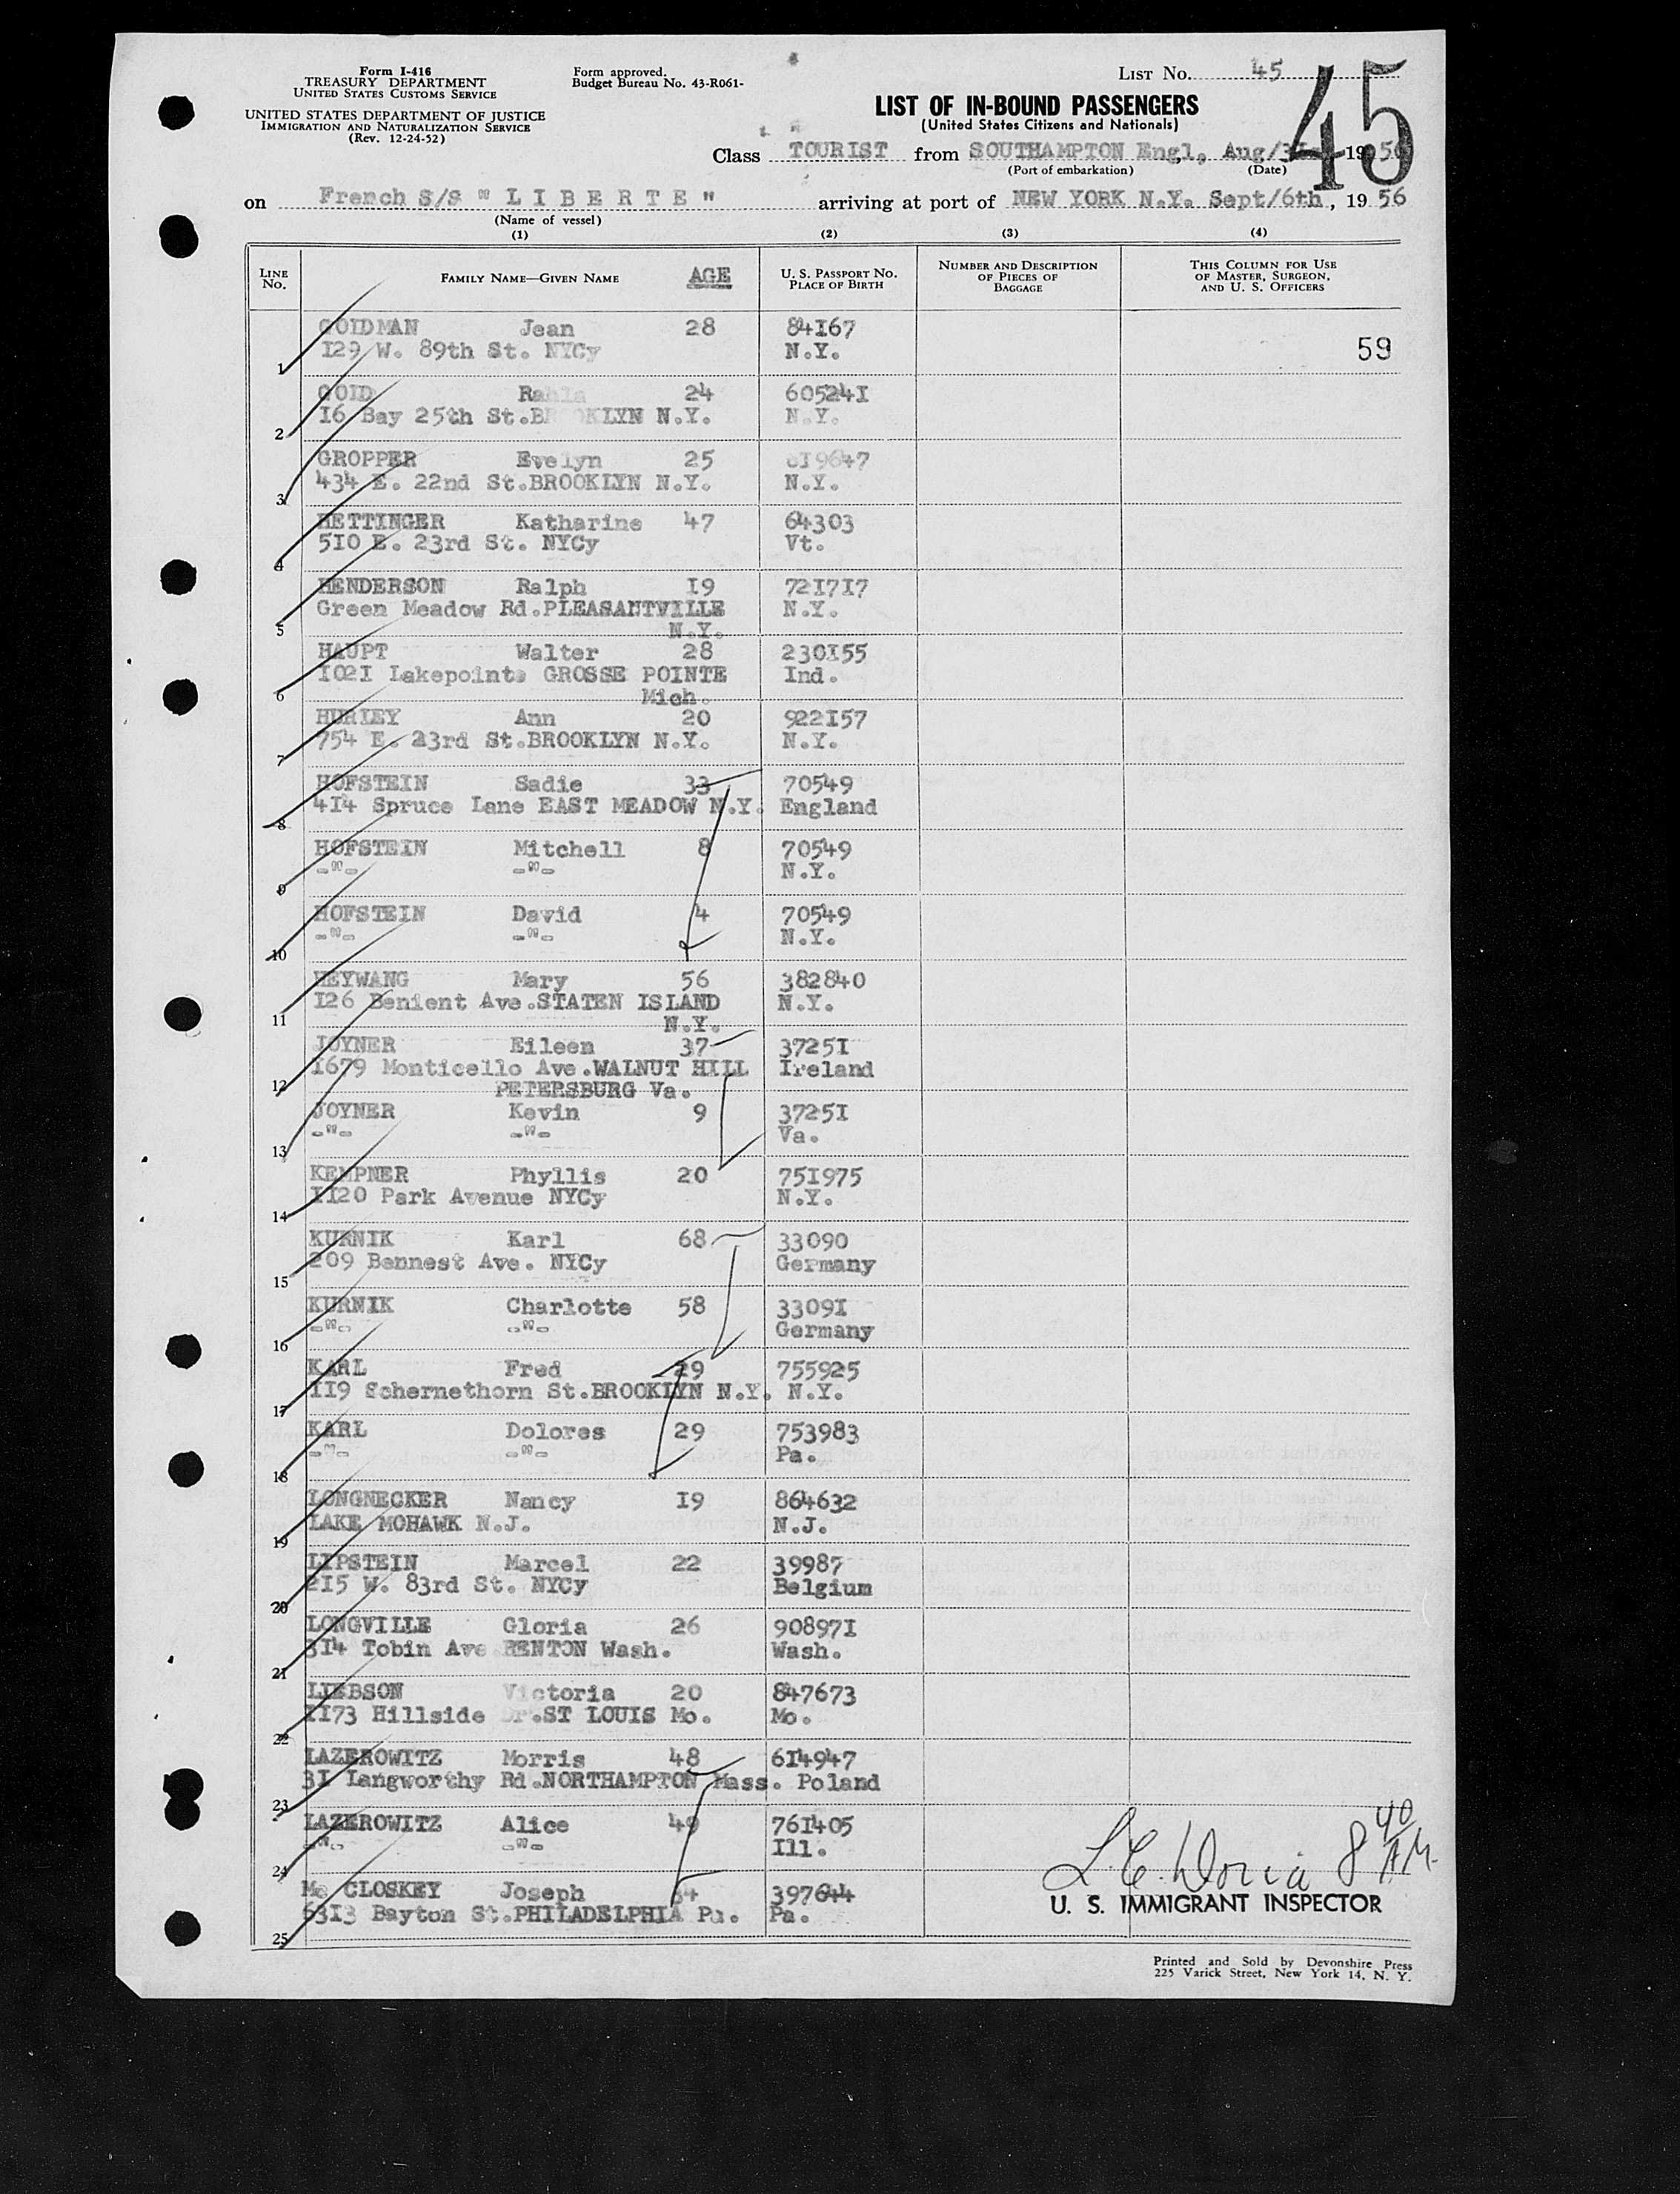 Form I-416
TREASURY DEPARTMENT
UNITED STATES CUSTOMS SERVICE
UNITED STATES DEPARTMENT OF JUSTICE
IMMIGRATION AND NATURALIZATION SERVICE
(Rev. 12-24-52)
Form approved.
Budget Bureau No. 43-R061-
LIST No. 45
45
LIST OF IN-BOUND PASSENGERS
(United States Citizens and Nationals)
Class TOURIST from SOUTHAMPTON Engl, Aug/ 1956
(Port of embarkation) (Date)
on French S/S "LIBERTE" arriving at port of NEW YORK N.Y. Sept/6th, 1956
(Name of vessel)
(1) (2) (3) (4)
LINE No. FAMILY NAME—GIVEN NAME AGE U. S. PASSPORT No. PLACE OF BIRTH NUMBER AND DESCRIPTION OF PIECES OF BAGGAGE THIS COLUMN FOR USE OF MASTER, SURGEON, AND U. S. OFFICERS
GOIDMAN Jean 28 84I67
1 I29 W. 89th St. NYCy N.Y. 59
GOID Rahla 24 60524I
2 I6 Bay 25th St.BROOKLYN N.Y. N.Y.
GROPPER Evelyn 25 6I9647
3 434 E. 22nd St.BROOKLYN N.Y. N.Y.
HETTINGER Katharine 47 64303
4 5I0 E. 23rd St. NYCy Vt.
HENDERSON Ralph I9 72I7I7
5 Green Meadow Rd.PLEASANTVILLE N.Y.
N.Y.
HAUPT Walter 28 230I55
6 I02I Lakepointe GROSSE POINTE Ind.
Mich.
HURLEY Ann 20 922I57
7 754 E. 23rd St.BROOKLYN N.Y. N.Y.
HOFSTEIN Sadie 33 70549
8 4I4 Spruce Lane EAST MEADOW N.Y. England
HOFSTEIN Mitchell 8 70549
9 -"- -"- N.Y.
HOFSTEIN David 4 70549
10 -"- -"- N.Y.
HEYWANG Mary 56 382840
11 I26 Benient Ave.STATEN ISLAND N.Y.
N.Y.
JOYNER Eileen 37 3725I
12 I679 Monticello Ave.WALNUT HILL Ireland
PETERSBURG Va.
JOYNER Kevin 9 3725I
13 -"- -"- Va.
KEMPNER Phyllis 20 75I975
14 II20 Park Avenue NYCy N.Y.
KURNIK Karl 68 33090
15 209 Bennest Ave. NYCy Germany
KURNIK Charlotte 58 3309I
16 -"- -"- Germany
KARL Fred 29 755925
17 II9 Schernethorn St.BROOKLYN N.Y. N.Y.
KARL Dolores 29 753983
18 -"- -"- Pa.
LONGNECKER Nancy I9 864632
19 LAKE MOHAWK N.J. N.J.
LIPSTEIN Marcel 22 39987
20 2I5 W. 83rd St. NYCy Belgium
LONGVILLE Gloria 26 90897I
21 3I4 Tobin Ave.RENTON Wash. Wash.
LIEBSON Victoria 20 847673
22 II73 Hillside Dr.ST LOUIS Mo. Mo.
LAZEROWITZ Morris 48 6I4947
23 3I Langworthy Rd.NORTHAMPTON Mass. Poland
LAZEROWITZ Alice 49 76I405
24 -"- -"- Ill.
Mc CLOSKEY Joseph 34 397644
25 63I3 Bayton St.PHILADELPHIA Pa. Pa.
8 40 AM.
U. S. IMMIGRANT INSPECTOR
Printed and Sold by Devonshire Press
225 Varick Street, New York 14, N. Y.